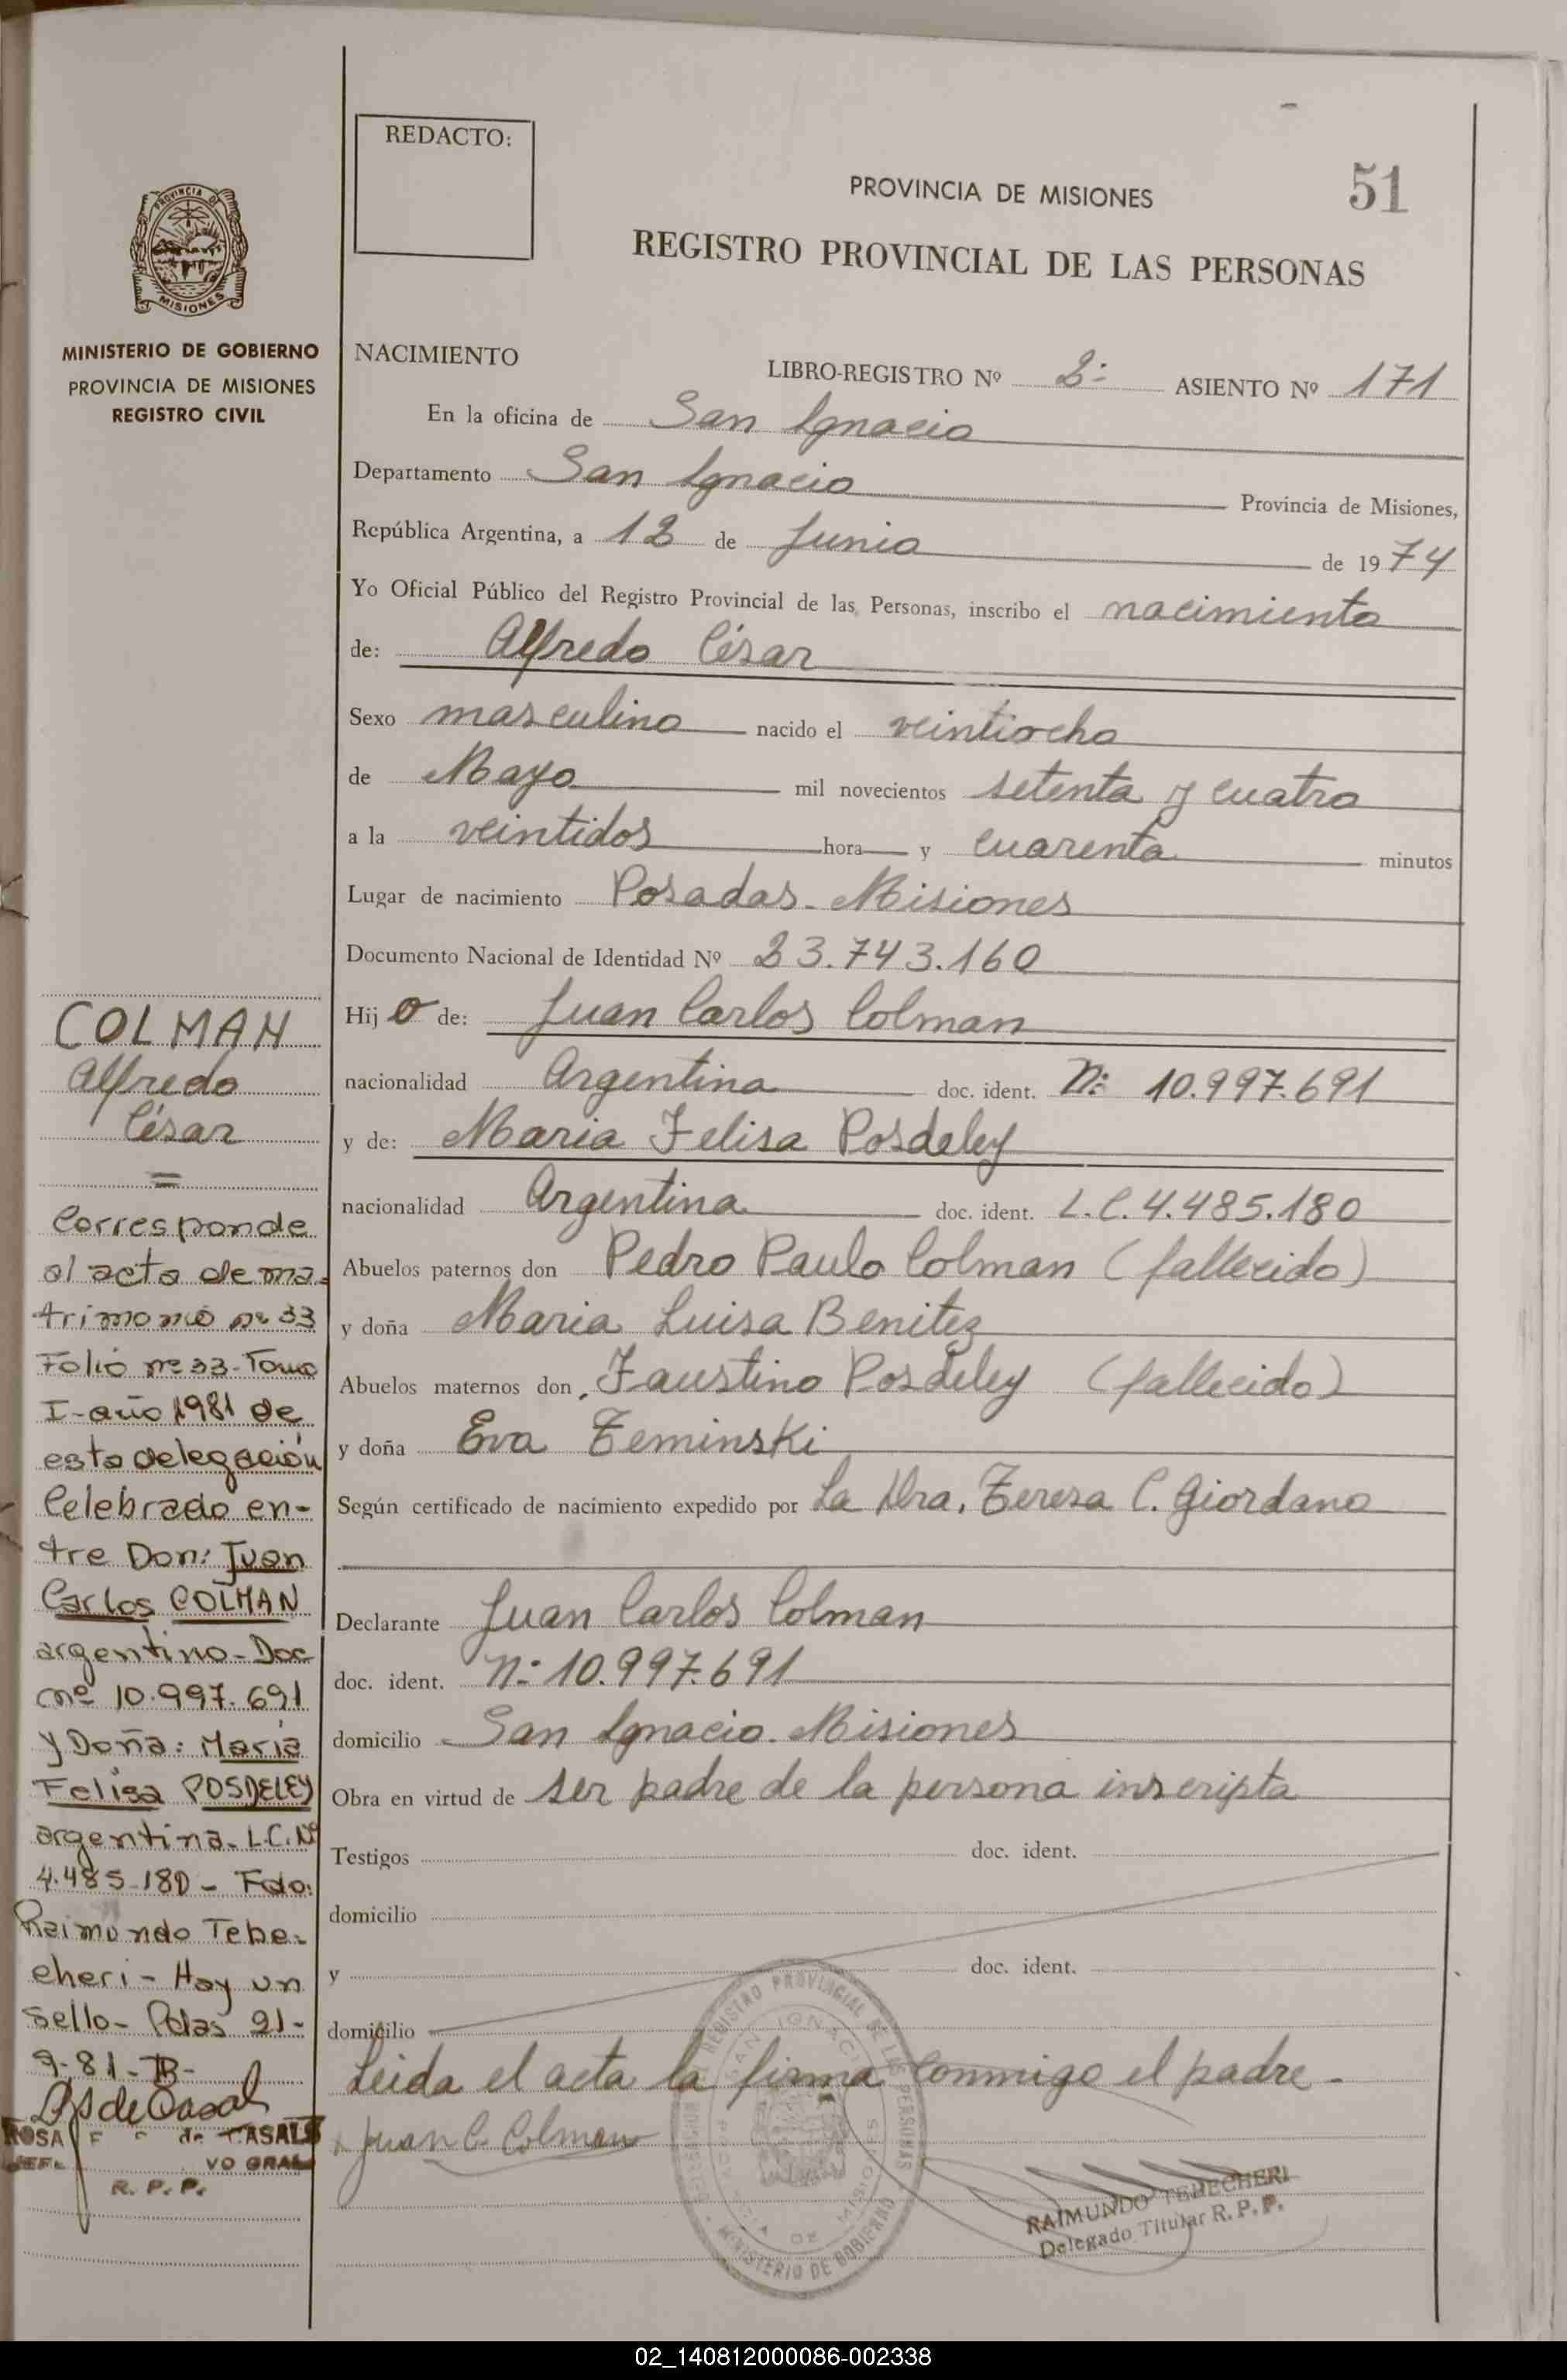 REDACTO:
PROVINCIA DE MISIONES
51
REGISTRO PROVINCIAL DE LAS PERSONAS
PROVINCIA DE
MISIONES
MINISTERIO DE GOBIERNO
PROVINCIA DE MISIONES
REGISTRO CIVIL
NACIMIENTO
LIBRO-REGISTRO Nº 2º ASIENTO Nº 171
En la oficina de San Ignacio
Departamento San Ignacio Provincia de Misiones,
República Argentina, a 12 de Junio de 1974
Yo Oficial Público del Registro Provincial de las Personas, inscribo el nacimiento
de: Alfredo César
Sexo masculino nacido el veintiocho
de Mayo mil novecientos setenta y cuatro
a la veintidos hora y cuarenta minutos
Lugar de nacimiento Posadas-Misiones
Documento Nacional de Identidad Nº 23.743.160
Hijo de: Juan Carlos Colman
nacionalidad Argentina doc. ident. Nº 10.997.691
y de: Maria Felisa Posdeley
nacionalidad Argentina doc. ident. L.C. 4.485.180
Abuelos paternos don Pedro Paulo Colman (fallecido)
y doña Maria Luisa Benitez
Abuelos maternos don, Faustino Posdeley (fallecido)
y doña Eva Zeminski
Según certificado de nacimiento expedido por La Dra. Teresa C. Giordano
Declarante Juan Carlos Colman
doc. ident. Nº 10.997.691
domicilio San Ignacio. Misiones
Obra en virtud de ser padre de la persona inscripta
Testigos doc. ident.
domicilio
y doc. ident.
domicilio
Leida el acta la firma conmigo el padre.
Juan C. Colman
REGISTRO PROVINCIAL DE LAS PERSONAS
SAN IGNACIO
MINISTERIO DE GOBIERNO
RAIMUNDO TEHECHERI
Delegado Titular R. P. P.
COLMAN
Alfredo
César
=
Corresponde
al acta de ma-
trimonio nº 33
Folio nº 33-Tomo
I-año 1981 de
esta delegación
Celebrado en-
tre Don: Juan
Carlos COLMAN
argentino-Doc
nº 10.997.691
y Doña: Maria
Felisa POSDELEY
argentina-L.C.Nº
4.485-180- Fdo:
Raimundo Tehe-
cheri- Hay un
sello- Pdas 21-
9-81-
ROSA de CASALS
R. P. P.
02_140812000086-002338